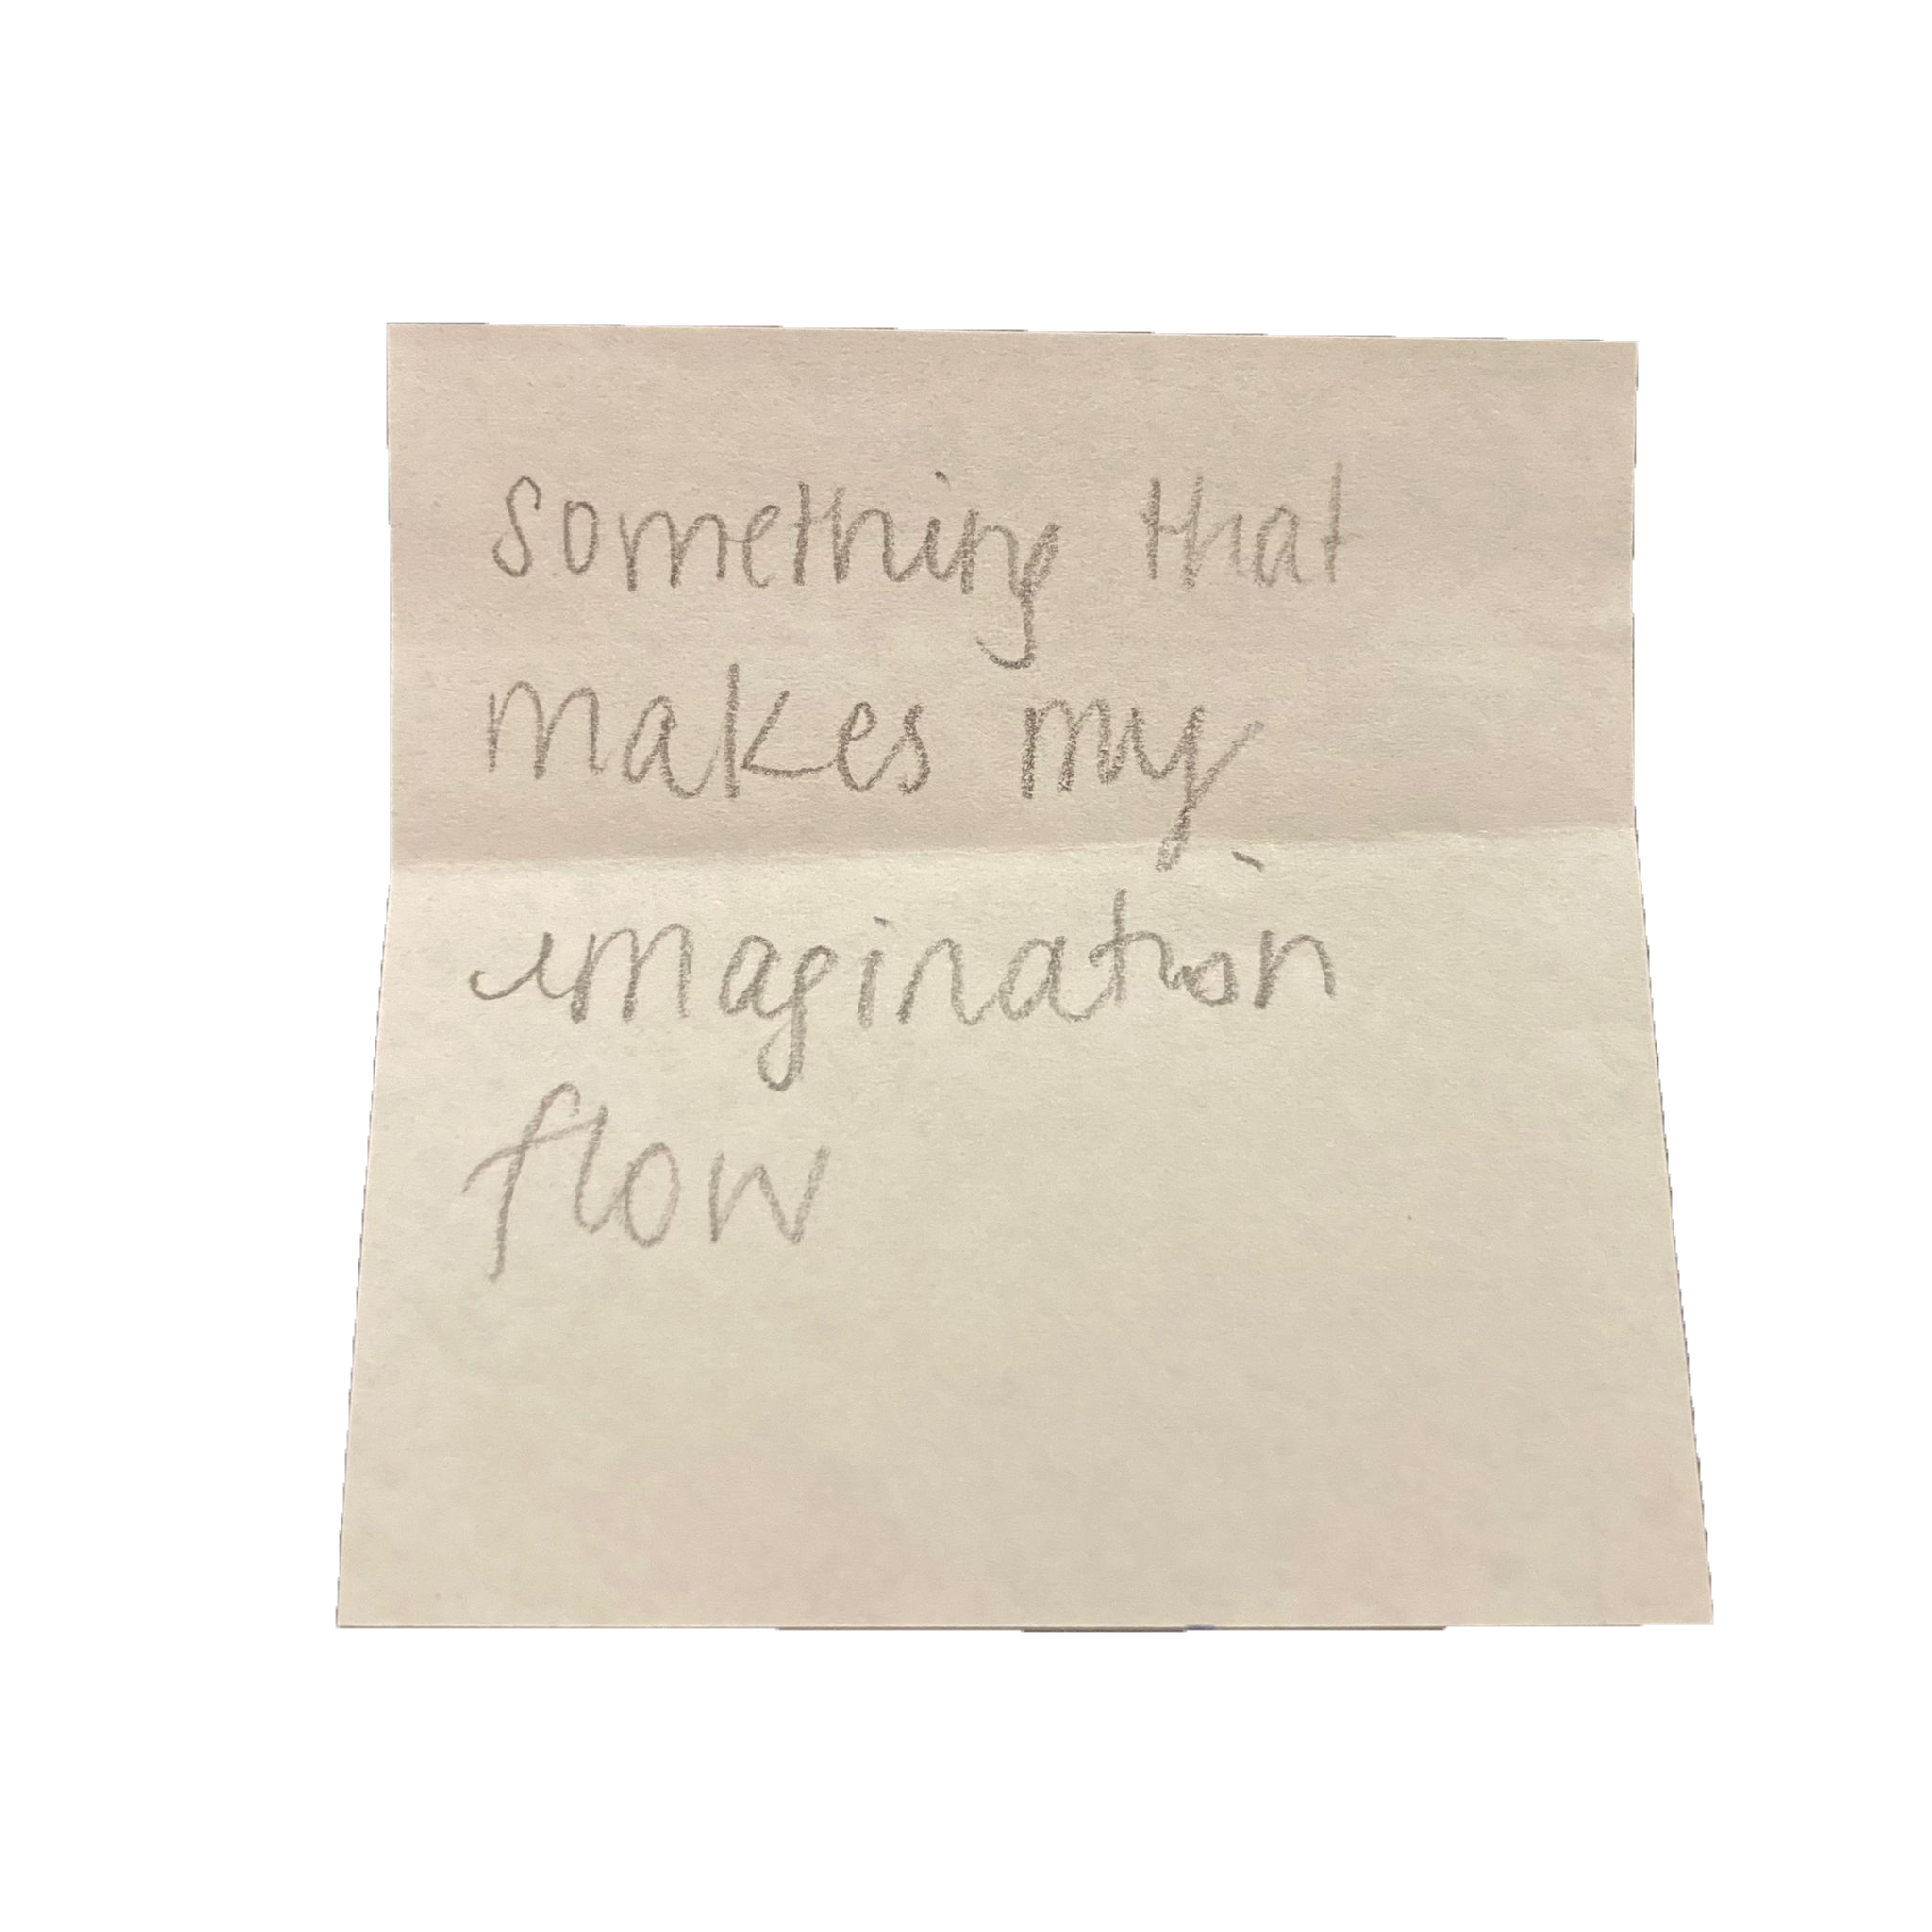 something that
makes my
imagination
flow